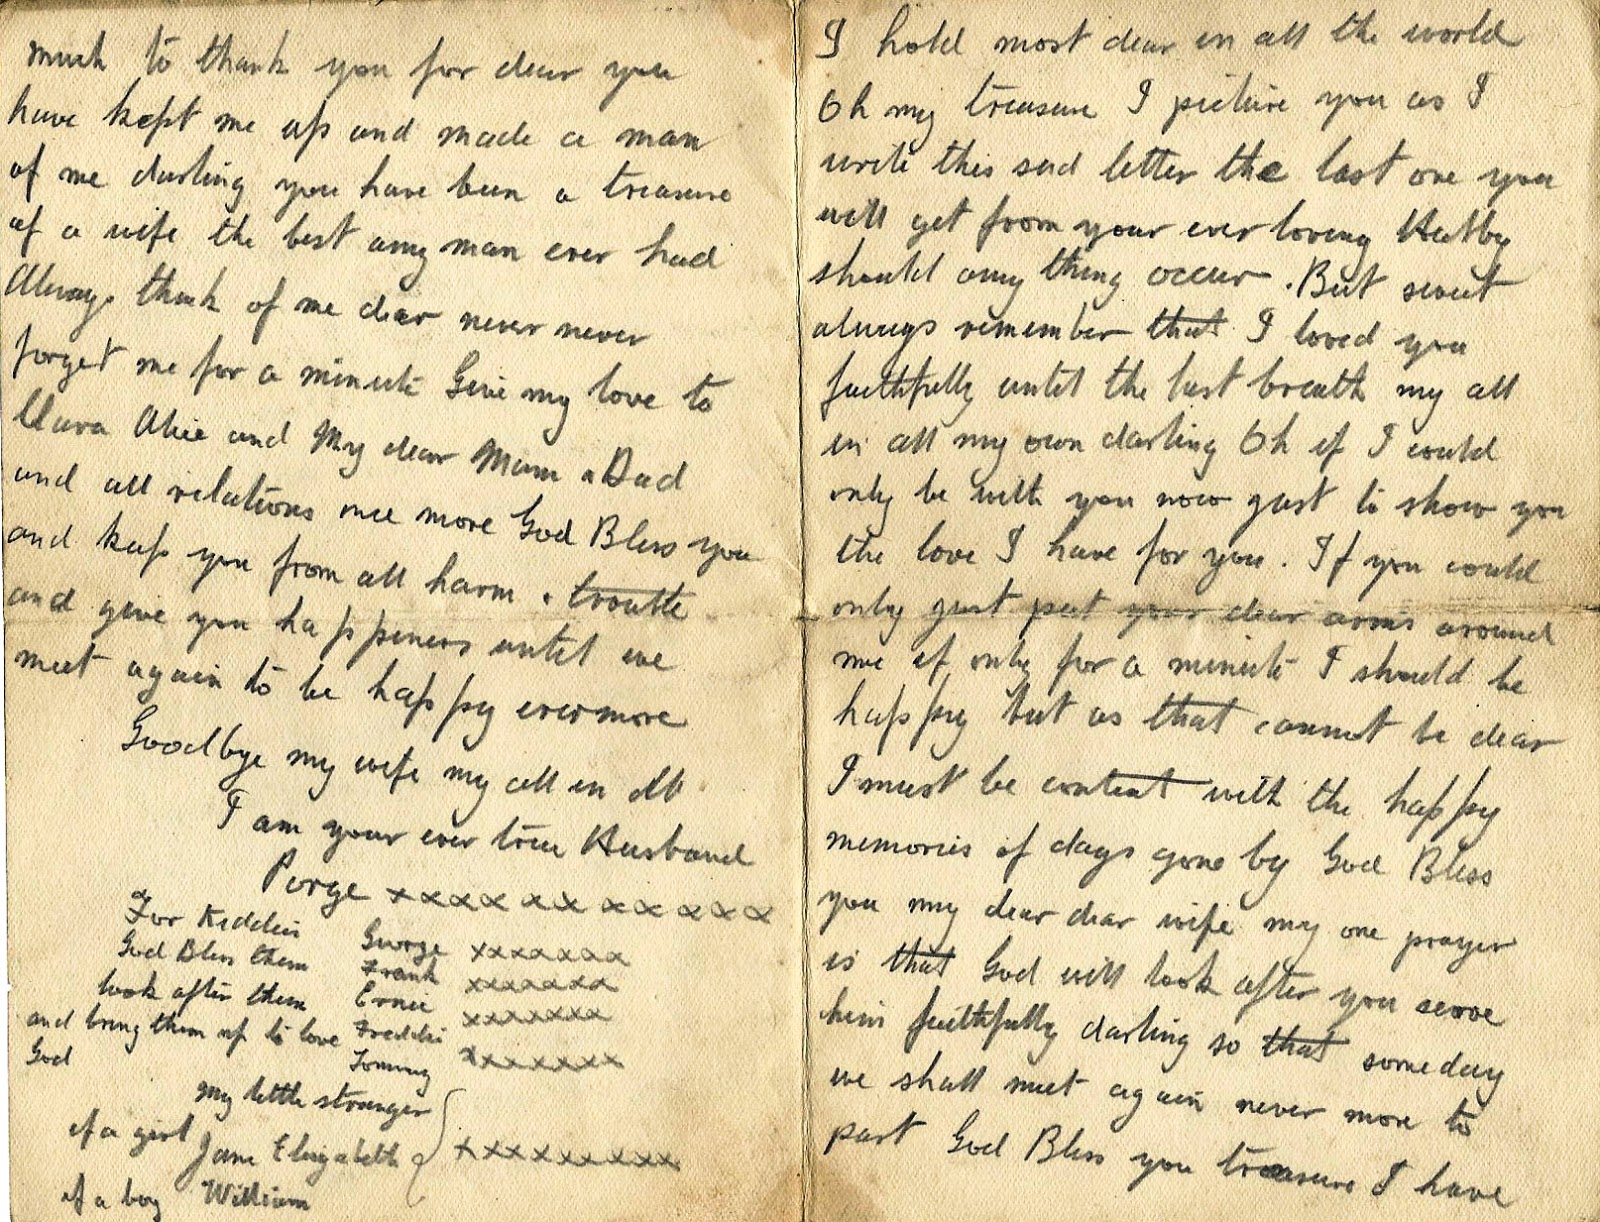 I hold most dear in all the world
Oh my treasure I picture you as I
write this sad letter the last one you
will get from your ever loving Hubby
should any thing occur. But sweet
always remember that I loved you
faithfully until the last breath my all
in all my own darling Oh if I could
only be with you now just to show you
the love I have for you. If you could
only just put your dear arms around
me if only for a minute I should be
happy but as that cannot be dear
I must be content with the happy
memories of days gone by God Bless
you my dear dear wife my one prayer
is that God will look after you serve
him faithfully darling so that someday
we shall meet again never more to
part God Bless you treasure I have
much to thank you for dear you
have kept me up and made a man
of me darling you have been a treasure
of a wife the best any man ever had
Always think of me dear never never
forget me for a minute Give my love to
Clara Alice and My dear Mam & Dad
and all relations once more God Bless you
and keep you from all harm & trouble
and give you happiness until we
meet again to be happy evermore
Goodbye my wife my all in all
I am your ever true Husband
Porge xxxxxxxxxxx
For Kiddies George xxxxxxx
God Bless them Frank xxxxxxx
look after them Ernie xxxxxxx
and bring them up to love Freddie
God Tommy xxxxxxx
My little stranger
if a girl Jane Elizabeth xxxxxxxxx
if a boy William